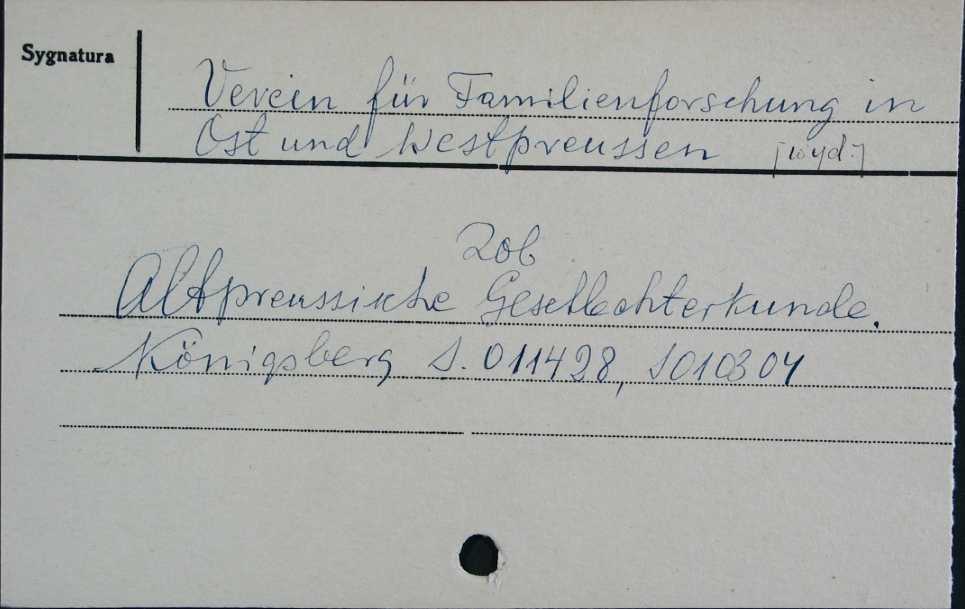 Sygnatura
Verein für Familienforschung in
Ost und Westpreussen [wyd.]
Zob
Altpreussische Geschlechterkunde.
Königsberg S. 011428, S010304